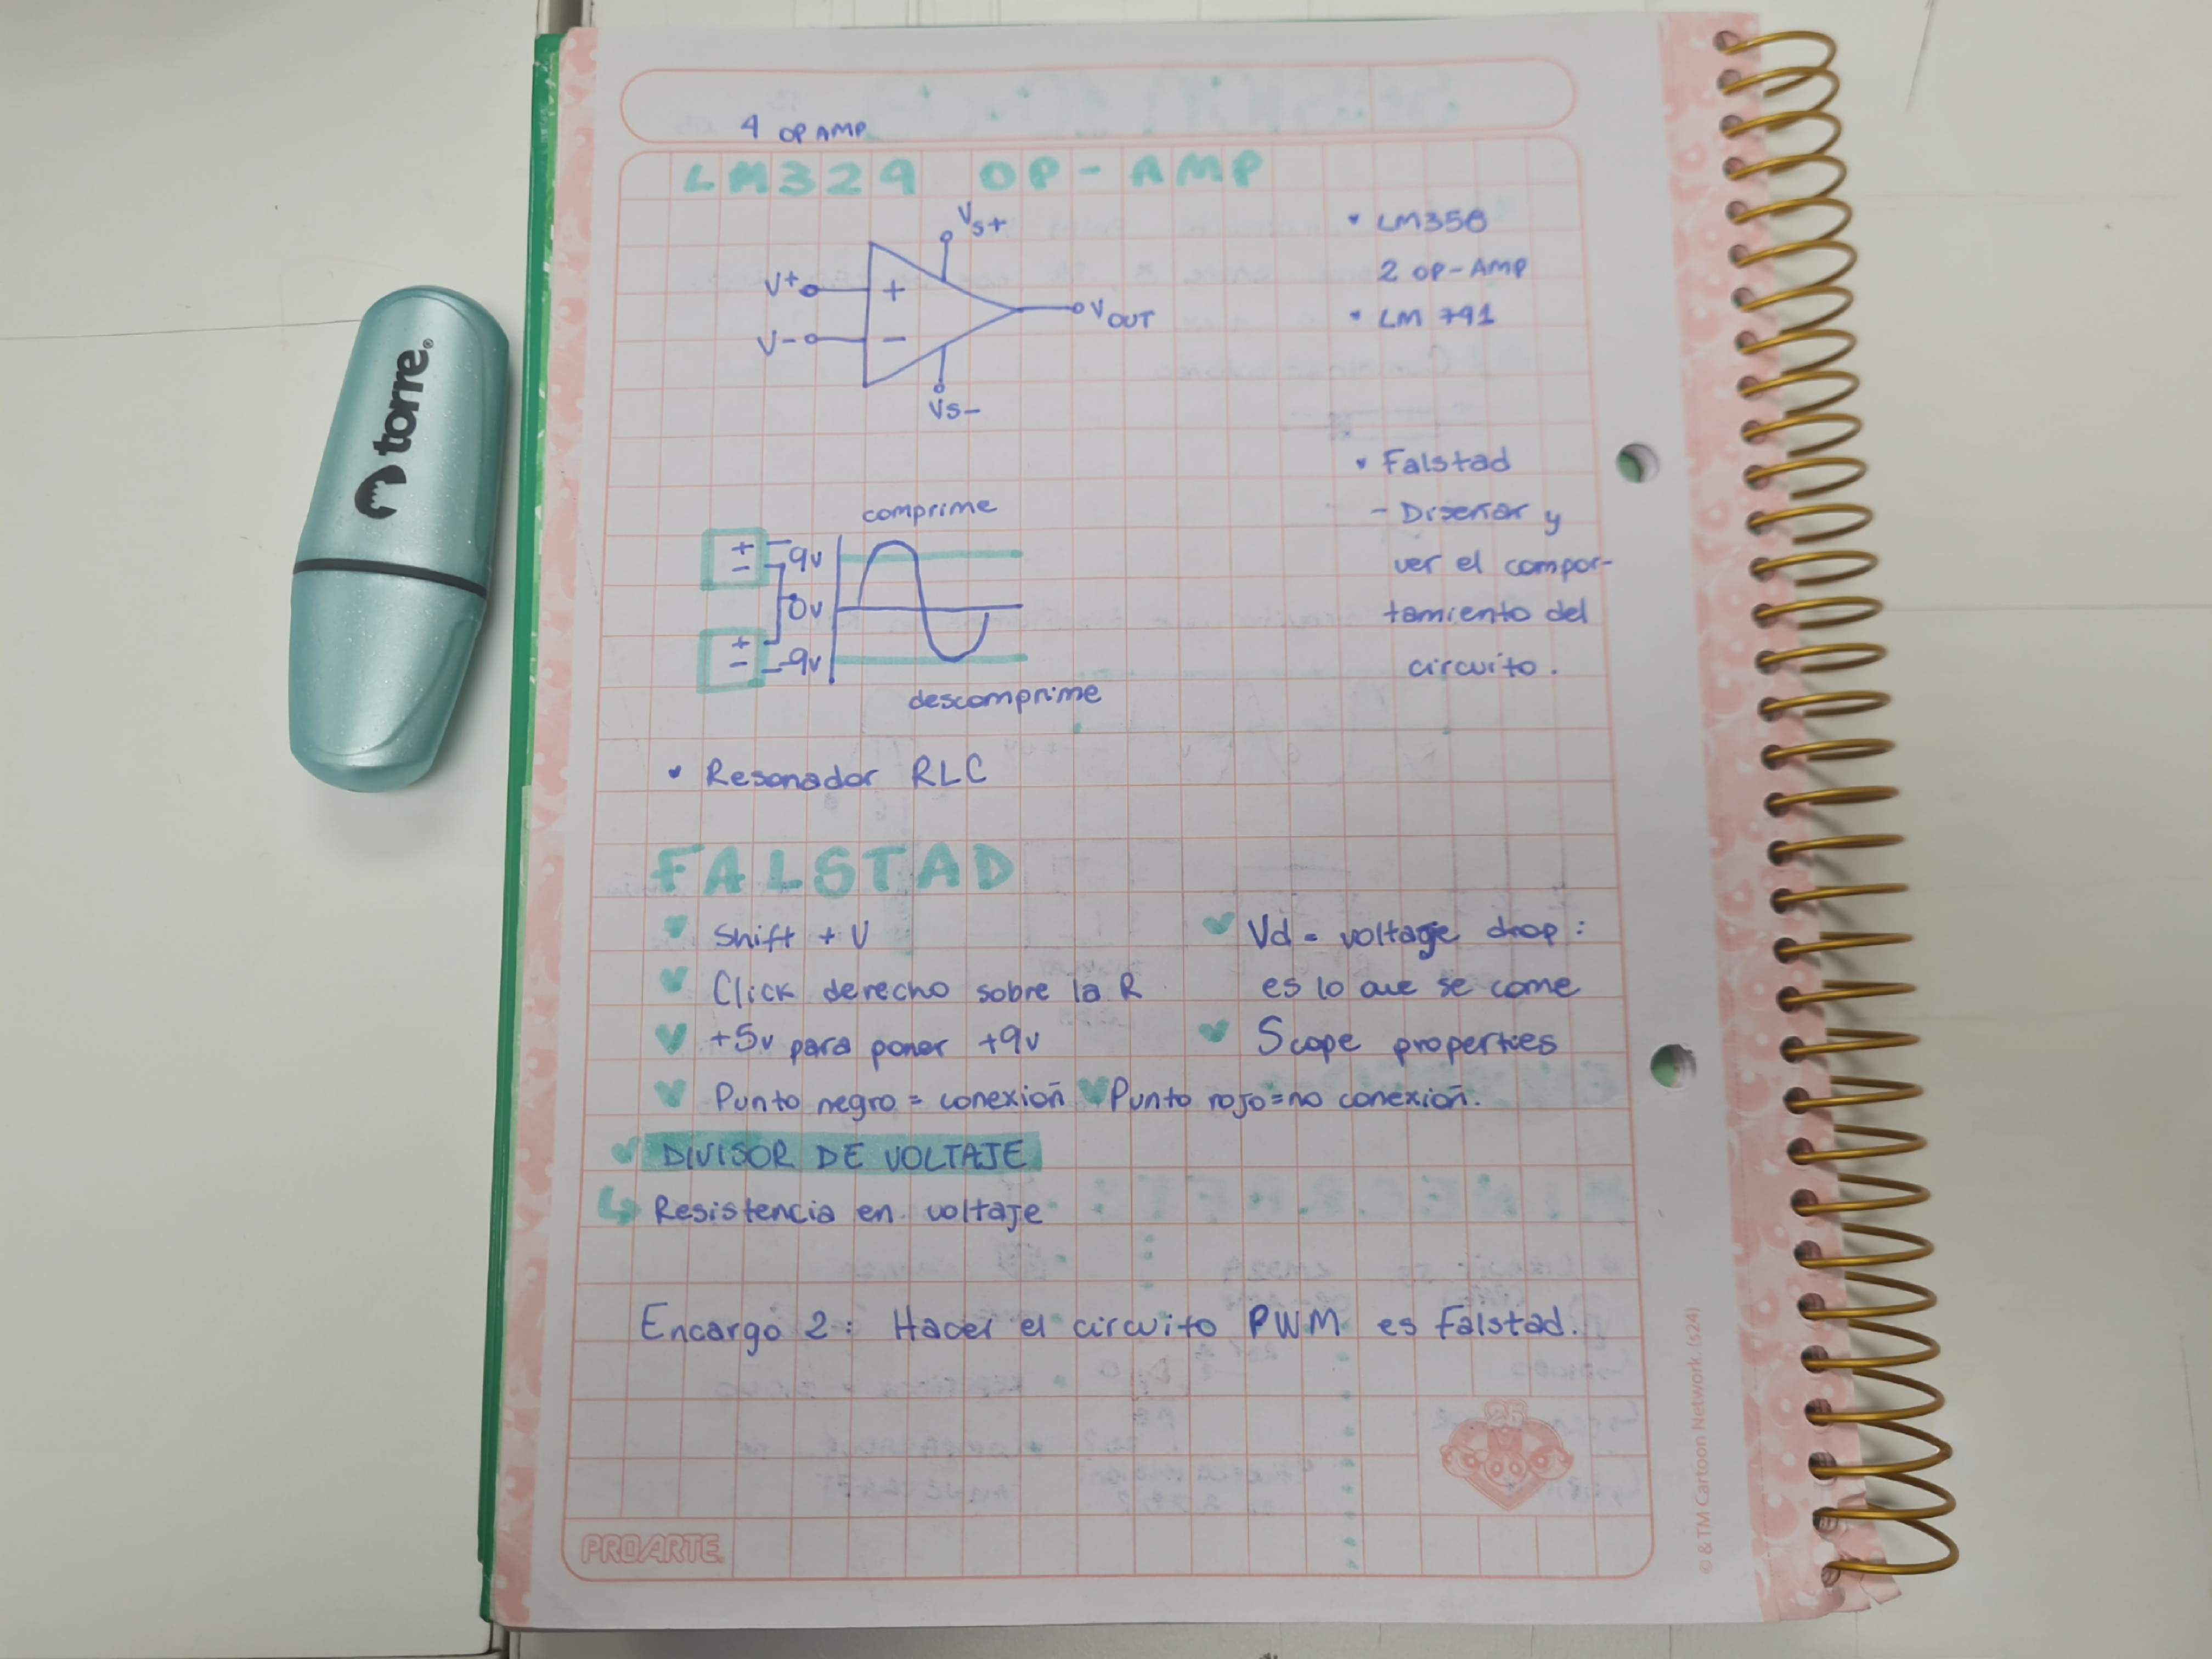 4 OP AMP
LM329 OP-AMP
Vs+
V+
+
V-
-
VOUT
Vs-
• LM358
2 OP-AMP
• LM 741
• Falstad
- Diseñar y
ver el compor-
tamiento del
circuito.
comprime
+
-
9v
0v
+
-
-9v
descomprime
• Resonador RLC
FALSTAD
Shift + V
Click derecho sobre la R
+5v para poner +9v
Punto negro = conexión
Vd = voltage drop:
es lo que se come
Scope properties
Punto rojo = no conexión.
DIVISOR DE VOLTAJE
Resistencia en voltaje
Encargo 2: Hacer el circuito PWM es Falstad.
PROARTE
© & TM Cartoon Network. (s24)
25
torre®